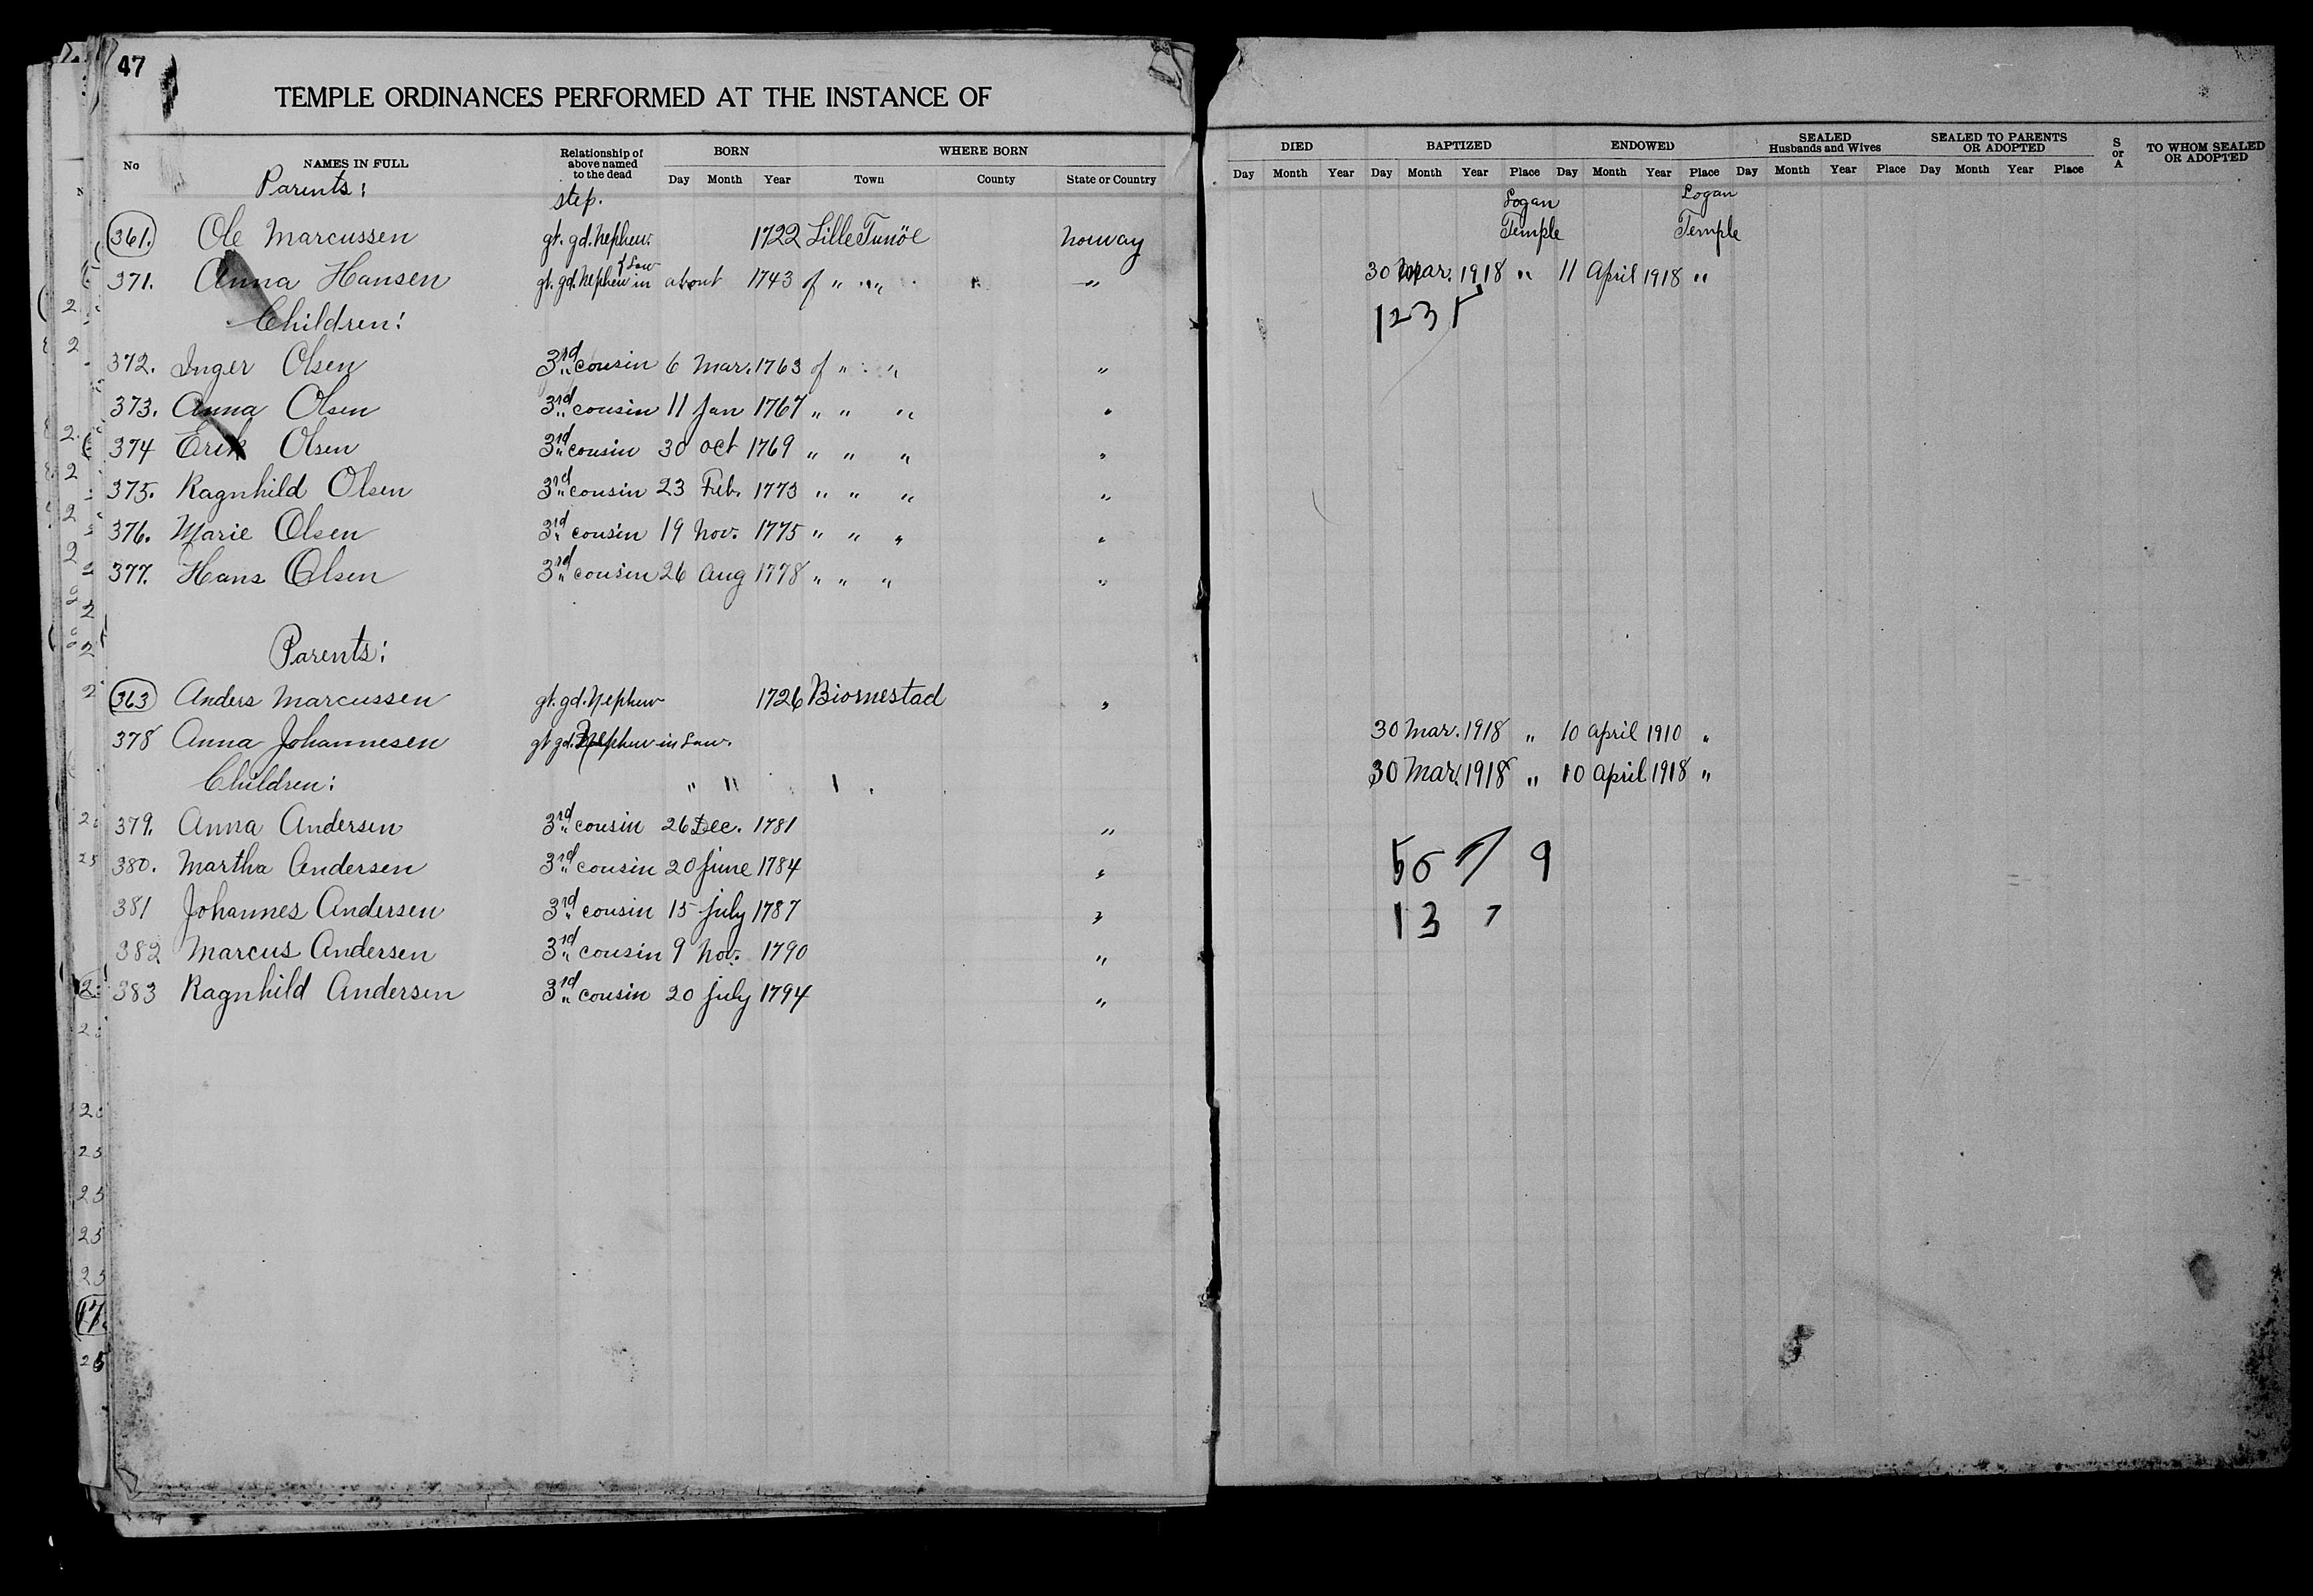 47
TEMPLE ORDINANCES PERFORMED AT THE INSTANCE OF
No NAMES IN FULL Relationship of above named to the dead BORN Day Month Year WHERE BORN Town County State or Country
DIED Day Month Year BAPTIZED Day Month Year Place ENDOWED Day Month Year Place SEALED Husbands and Wives Day Month Year Place SEALED TO PARENTS OR ADOPTED Day Month Year Place S or A TO WHOM SEALED OR ADOPTED
Parents: step. Logan Logan
361. Ole Marcussen gt. gd. Nephew. 1722 Lille Tunöe Norway Temple Temple
371. Anna Hansen gt. gd. Nephew in Law about 1743 of " " " 30 Mar. 1918 " 11 April 1918 "
Children: 1235
372. Inger Olsen 3rd cousin 6 Mar. 1763 of " " "
373. Anna Olsen 3rd cousin 11 Jan 1767 " " " "
374 Erik Olsen 3rd cousin 30 Oct 1769 " " " "
375. Ragnhild Olsen 3rd cousin 23 Feb. 1773 " " " "
376. Marie Olsen 3rd cousin 19 Nov. 1775 " " " "
377. Hans Olsen 3rd cousin 26 Aug 1778 " " " "
Parents:
363 Anders Marcussen gt. gd. Nephew 1726 Biornestad "
378 Anna Johannesen gt gd. Nephew in Law. 30 Mar. 1918 " 10 April 1910 "
Children: 30 Mar. 1918 " 10 April 1918 "
379. Anna Andersen 3rd cousin 26 Dec. 1781 "
380. Martha Andersen 3rd cousin 20 June 1784 "
381 Johannes Andersen 3rd cousin 15 July 1787 " 13 7
382 Marcus Andersen 3rd cousin 9 Nov. 1790 "
383 Ragnhild Andersen 3rd cousin 20 July 1794 "